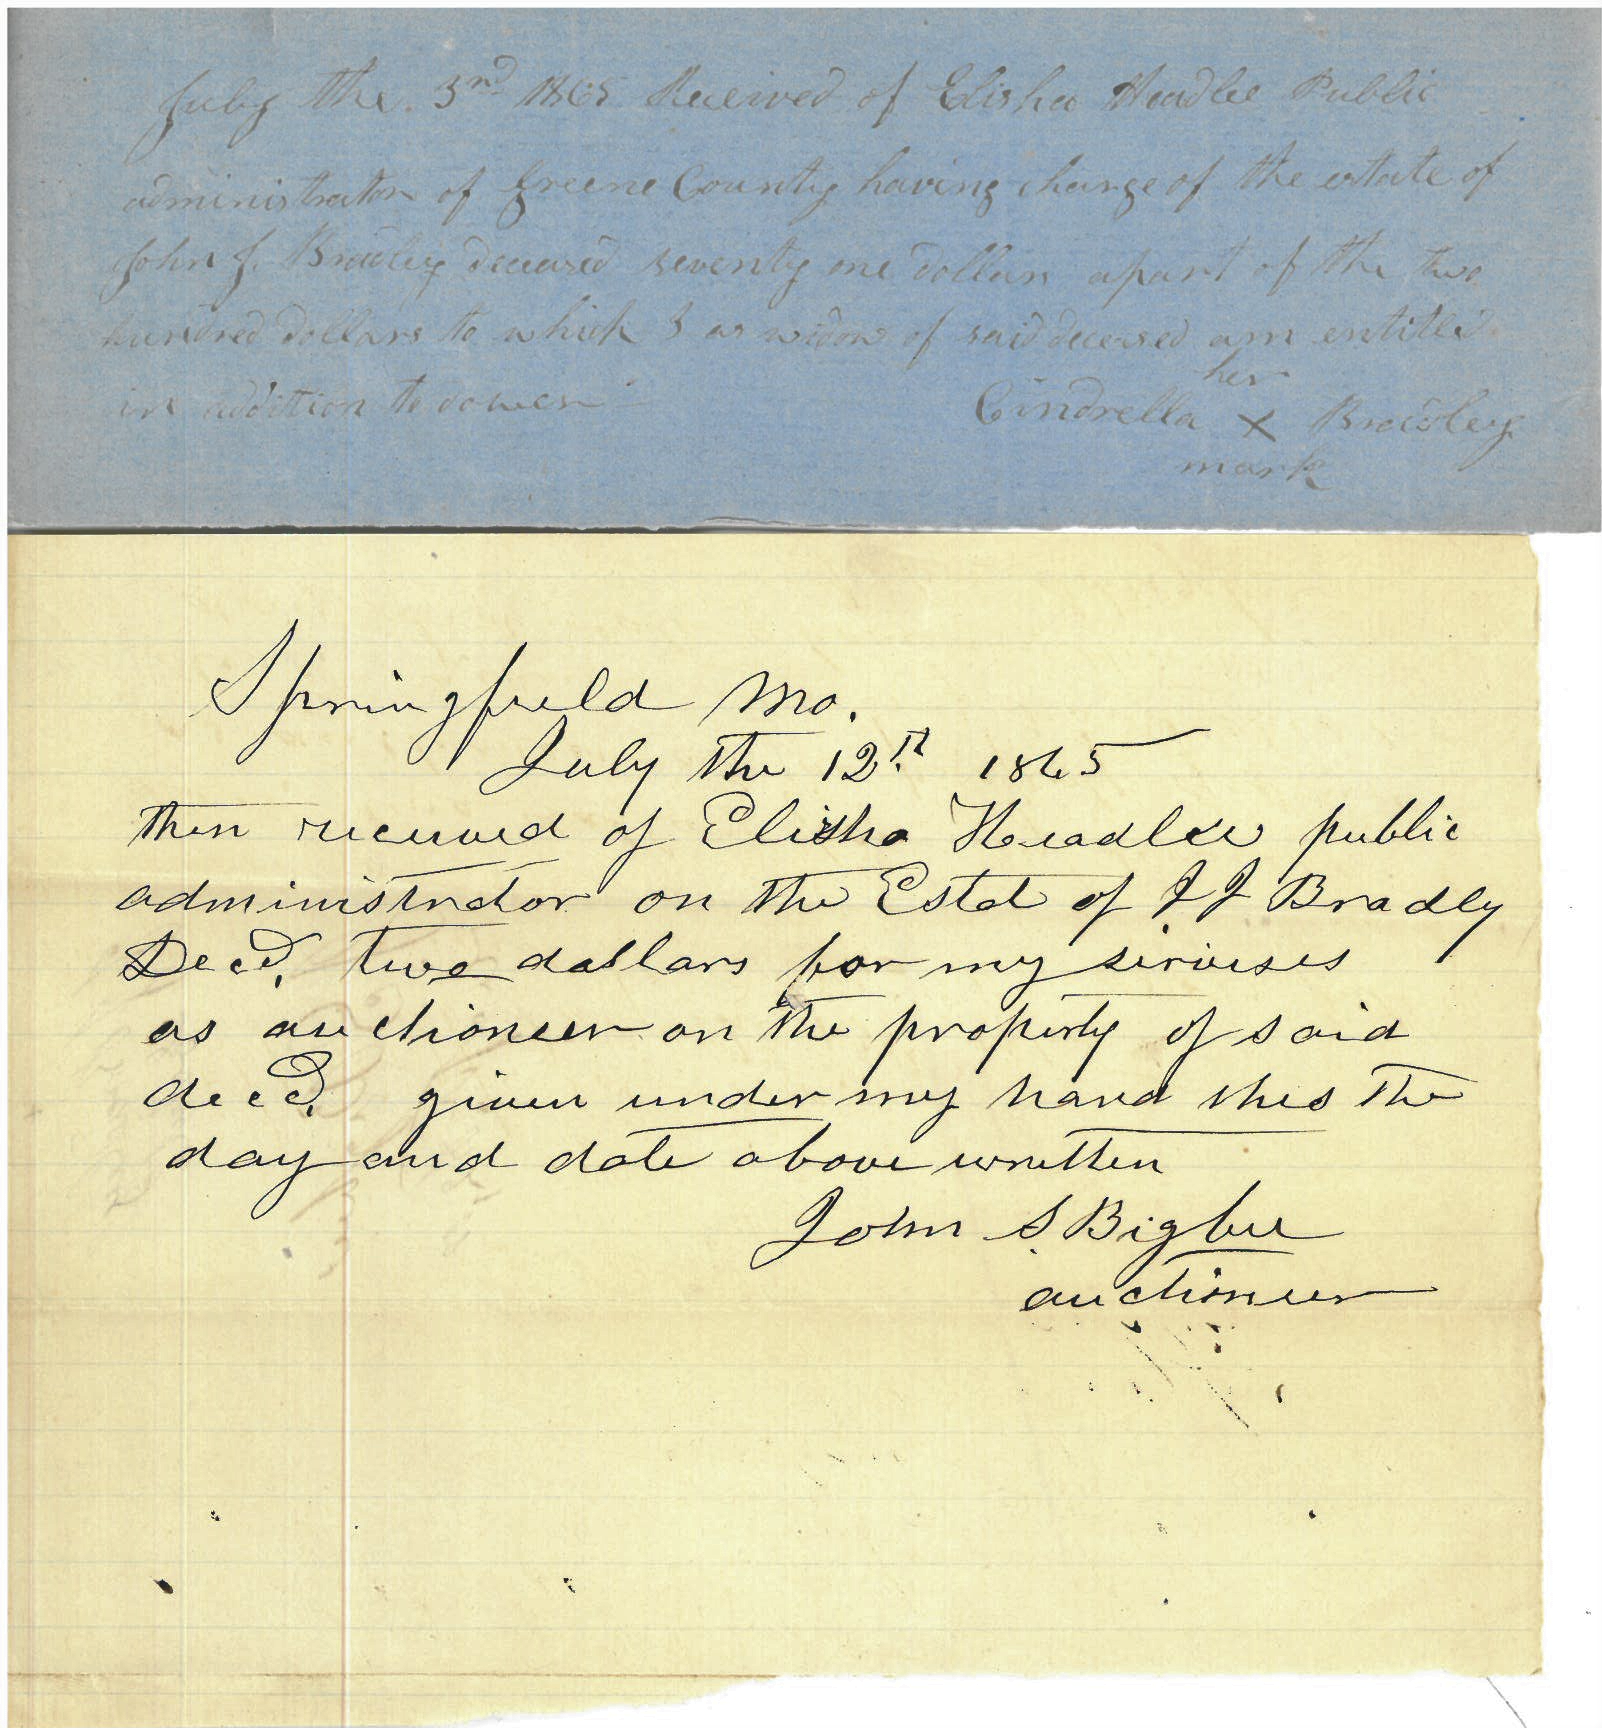 July the 3rd 1865 Received of Elisha Headlee Public
administrator of Greene County having charge of the estate of
John J. Bradley deceased seventy one dollars apart of the two
hundred dollars to which I as widow of said deceased am entitled
in addition to dower
her
Cindrella X Bradley
mark
Springfield Mo.
July the 12th 1865
then received of Elisha Headlee public
administrator on the Estat of J J Bradly
Decd, two dollars for my servises
as auctioneer on the property of said
decd, given under my hand this the
day and date above written
John S Bigbee
auctioneer